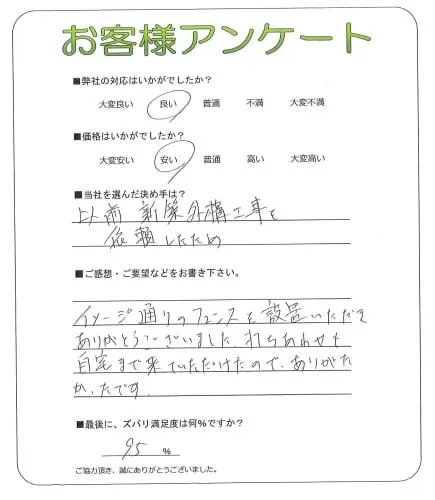 お客様アンケート
■弊社の対応はいかがでしたか?
大変良い 良い 普通 不満 大変不満
■価格はいかがでしたか?
大変安い 安い 普通 高い 大変高い
■当社を選んだ決め手は?
以前 新築外構工事を
依頼したため
■ご感想・ご要望などをお書き下さい。
イメージ通りのフェンスを設置いただき
ありがとうございました。打ちあわせも
自宅まで来ていただけたので、ありがた
かったです。
■最後に、ズバリ満足度は何%ですか?
95 %
ご協力頂き、誠にありがとうございました。